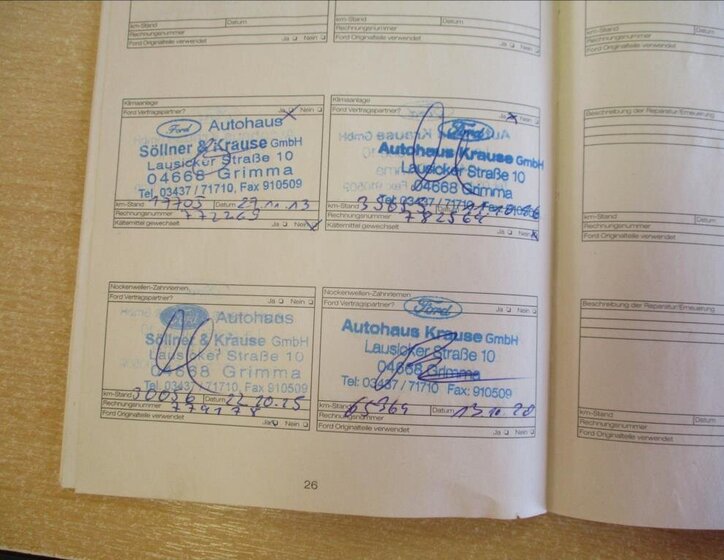 km-Stand Datum
Rechnungsnummer
Ford Originalteile verwendet Ja Nein
km-Stand Datum
Rechnungsnummer
Ford Originalteile verwendet Ja Nein
km-Stand
Rechnungsnummer
Ford Originalteile verwendet
Klimaanlage
Ford Vertragspartner? Ja Nein
Ford Autohaus
Söllner & Krause GmbH
Lausicker Straße 10
04668 Grimma
Tel. 03437 / 71710, Fax 910509
km-Stand Datum 27.11.13
Rechnungsnummer
Kältemittel gewechselt Ja Nein
Klimaanlage
Ford Vertragspartner? Ja Nein
Ford
Autohaus Krause GmbH
Lausicker Straße 10
04668 Grimma
Tel: 03437 / 71710 Fax: 910509
km-Stand
Rechnungsnummer 782564
Kältemittel gewechselt Ja Nein
Beschreibung der Reparatur/Erneuerung
km-Stand
Rechnungsnummer
Ford Originalteile verwendet
Nockenwellen-Zahnriemen
Ford Vertragspartner? Ja Nein
Ford Autohaus
Söllner & Krause GmbH
Lausicker Straße 10
04668 Grimma
Tel. 03437 / 71710, Fax 910509
km-Stand 30056 Datum
Rechnungsnummer 779178
Ford Originalteile verwendet Ja Nein
Nockenwellen-Zahnriemen
Ford Vertragspartner? Ja Nein
Ford
Autohaus Krause GmbH
Lausicker Straße 10
04668 Grimma
Tel: 03437 / 71710 Fax: 910509
km-Stand 65364 Datum 13.10.20
Rechnungsnummer
Ford Originalteile verwendet Ja Nein
Beschreibung der Reparatur/Erneuerung
km-Stand
Rechnungsnummer
Ford Originalteile verwendet
26